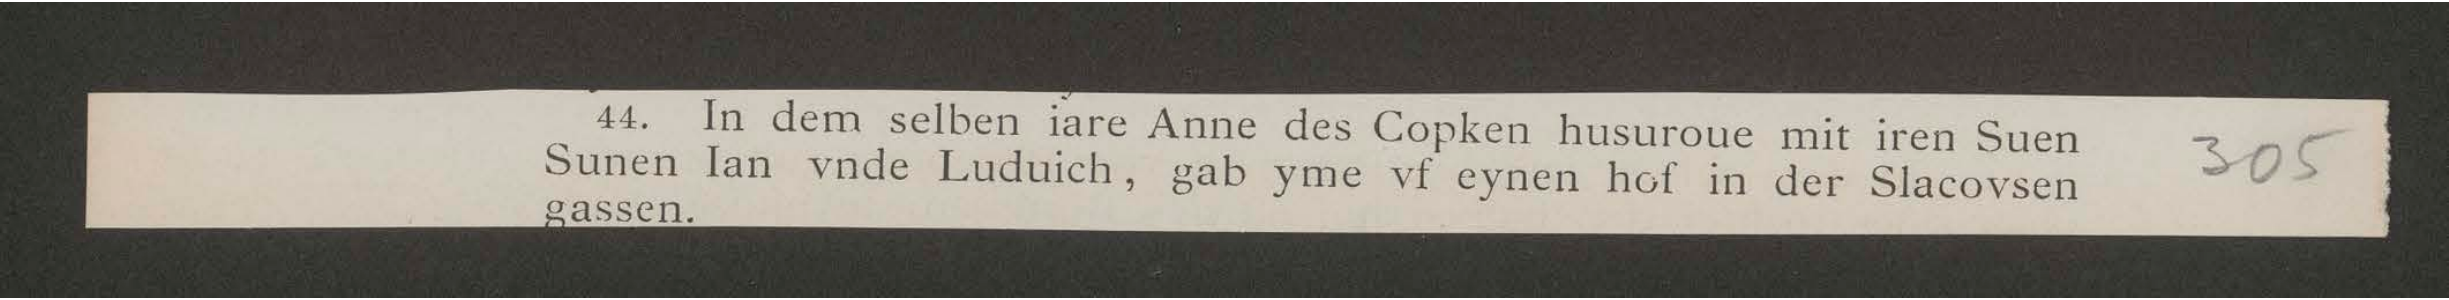 44. In dem selben iare Anne des Copken husuroue mit iren Suen
Sunen Ian vnde Luduich, gab yme vf eynen hof in der Slacovsen
gassen.
305